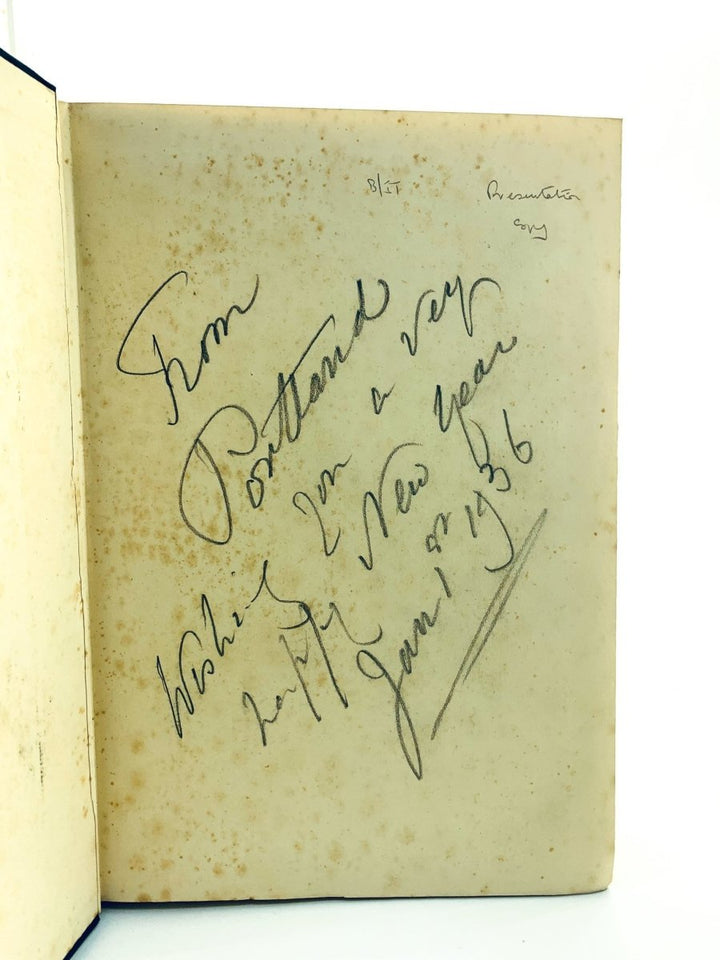 Presentation
copy
From
Portland
Wishing you a very
happy New Year
Jan 1st 1936